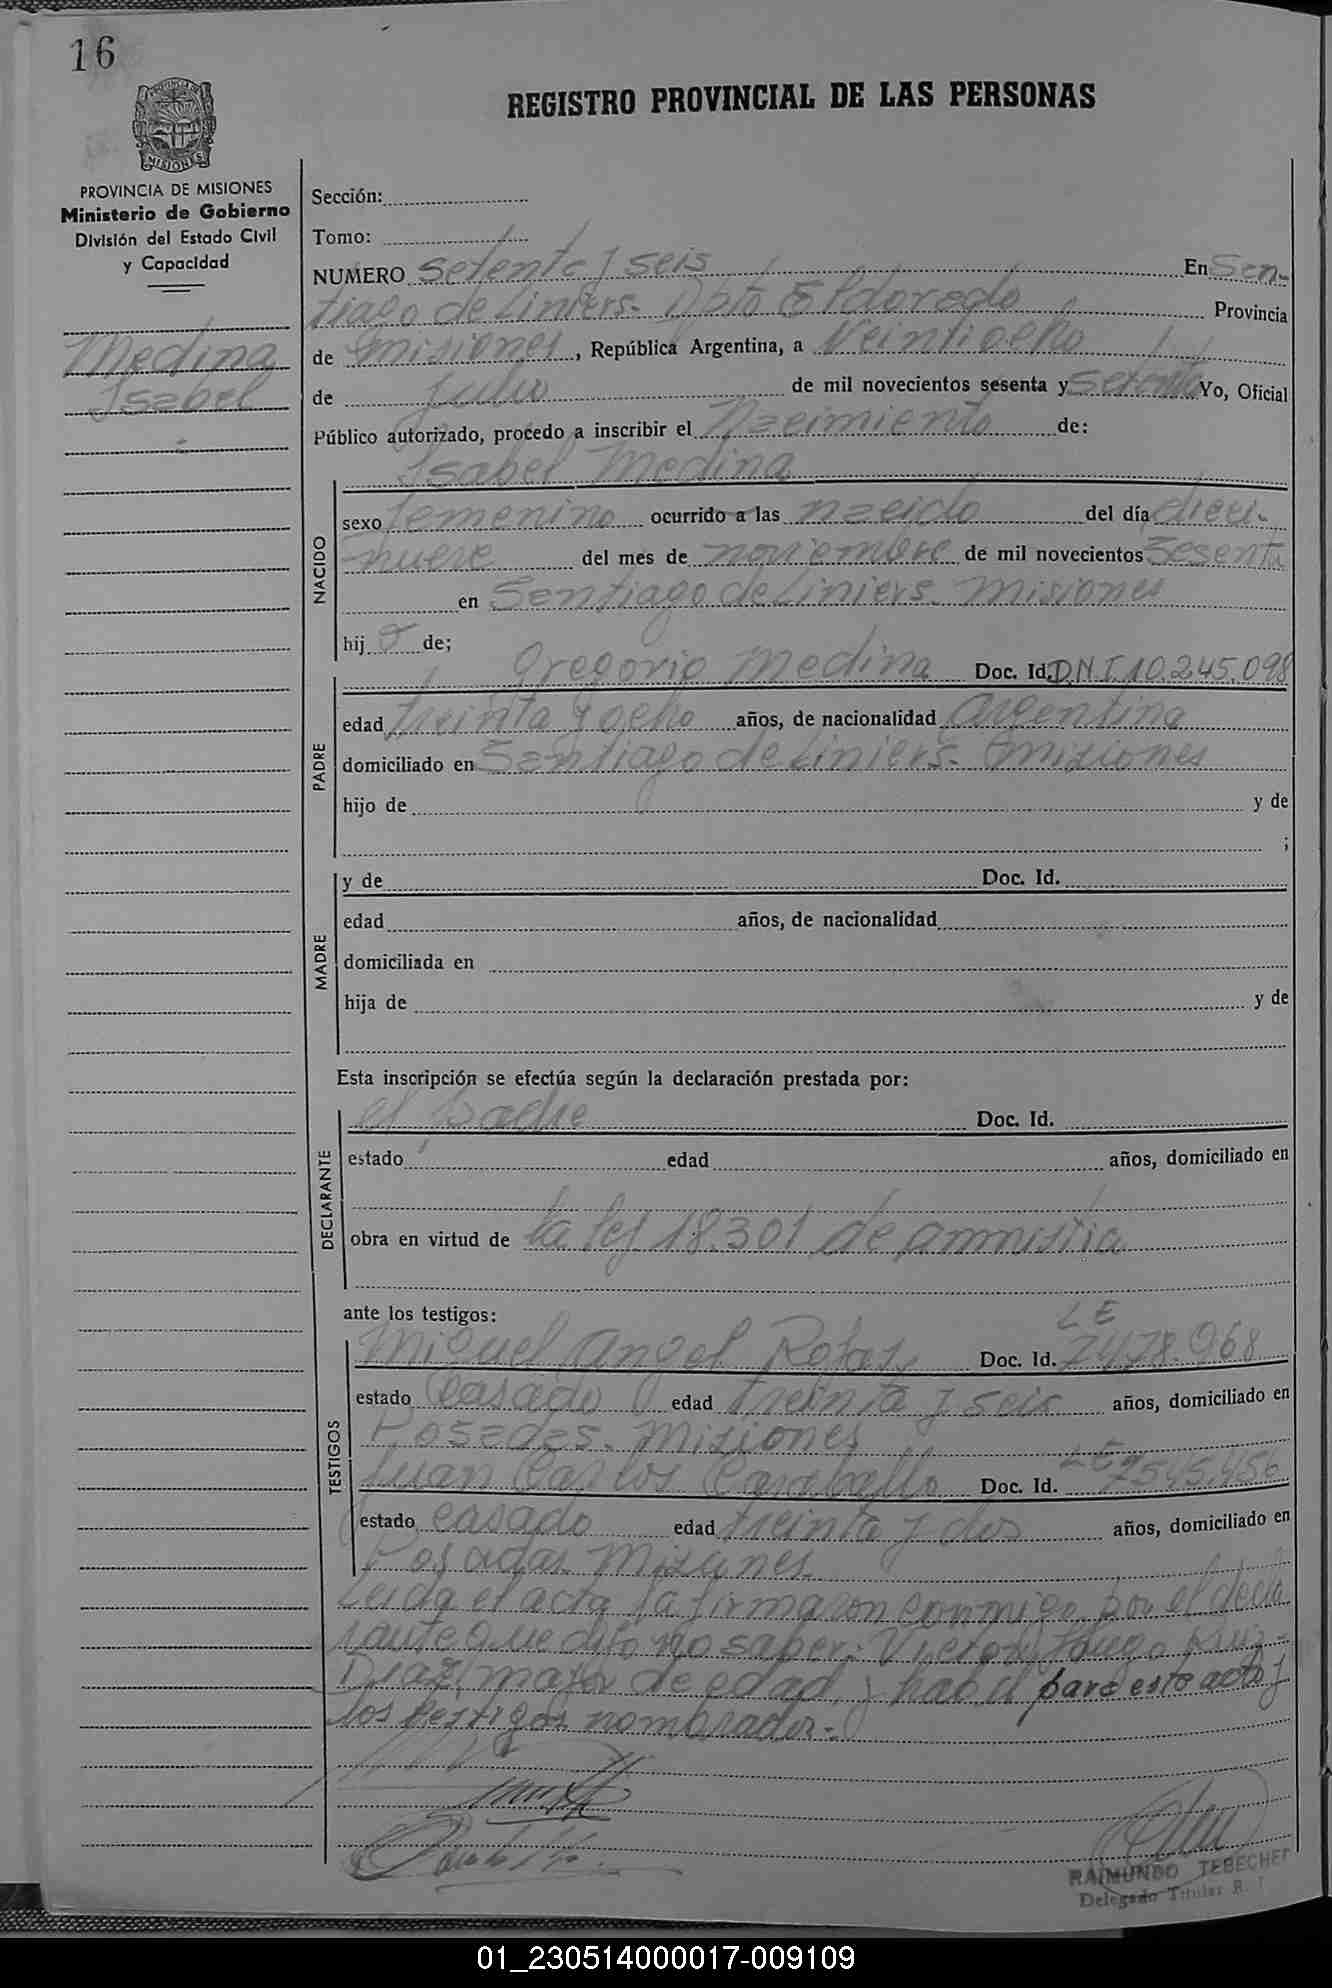 16
REGISTRO PROVINCIAL DE LAS PERSONAS
MISIONES
PROVINCIA DE MISIONES
Ministerio de Gobierno
División del Estado Civil
y Capacidad
Medina
Isabel
Sección:
Tomo:
NUMERO Setenta y seis En San-
tiago de Liniers. Dpto Eldorado Provincia
de Misiones, República Argentina, a Veintiocho
de Julio de mil novecientos sesenta y setenta Yo, Oficial
Público autorizado, procedo a inscribir el Nacimiento de:
Isabel Medina
NACIDO
sexo femenino ocurrido a las nacido del día dieci-
nueve del mes de noviembre de mil novecientos sesenta
en Santiago de Liniers. Misiones
hij a de;
Gregorio Medina Doc. Id. D.N.I. 10.245.098
PADRE
edad treinta y ocho años, de nacionalidad Argentina
domiciliado en Santiago de Liniers. Misiones
hijo de y de
;
y de Doc. Id.
MADRE
edad años, de nacionalidad
domiciliada en
hija de y de
Esta inscripción se efectúa según la declaración prestada por:
el padre Doc. Id.
DECLARANTE
estado edad años, domiciliado en
obra en virtud de la ley 18.301 de amnistia
ante los testigos:
LE
Miguel Angel Rojas Doc. Id. 7478.968
TESTIGOS
estado Casado edad treinta y seis años, domiciliado en
Posadas. Misiones
Juan Carlos Caraballo Doc. Id. LE 7545.456
estado casado edad treinta y dos años, domiciliado en
Posadas Misiones
Leida el acta la firmaron conmigo por el decla
rante que dijo no saber: Victor Hugo Ruiz-
Diaz, mayor de edad y habil para esto acto y
los testigos nombrados.-
RAIMUNDO TEBECHER
Delegado Titular R.
01_230514000017-009109